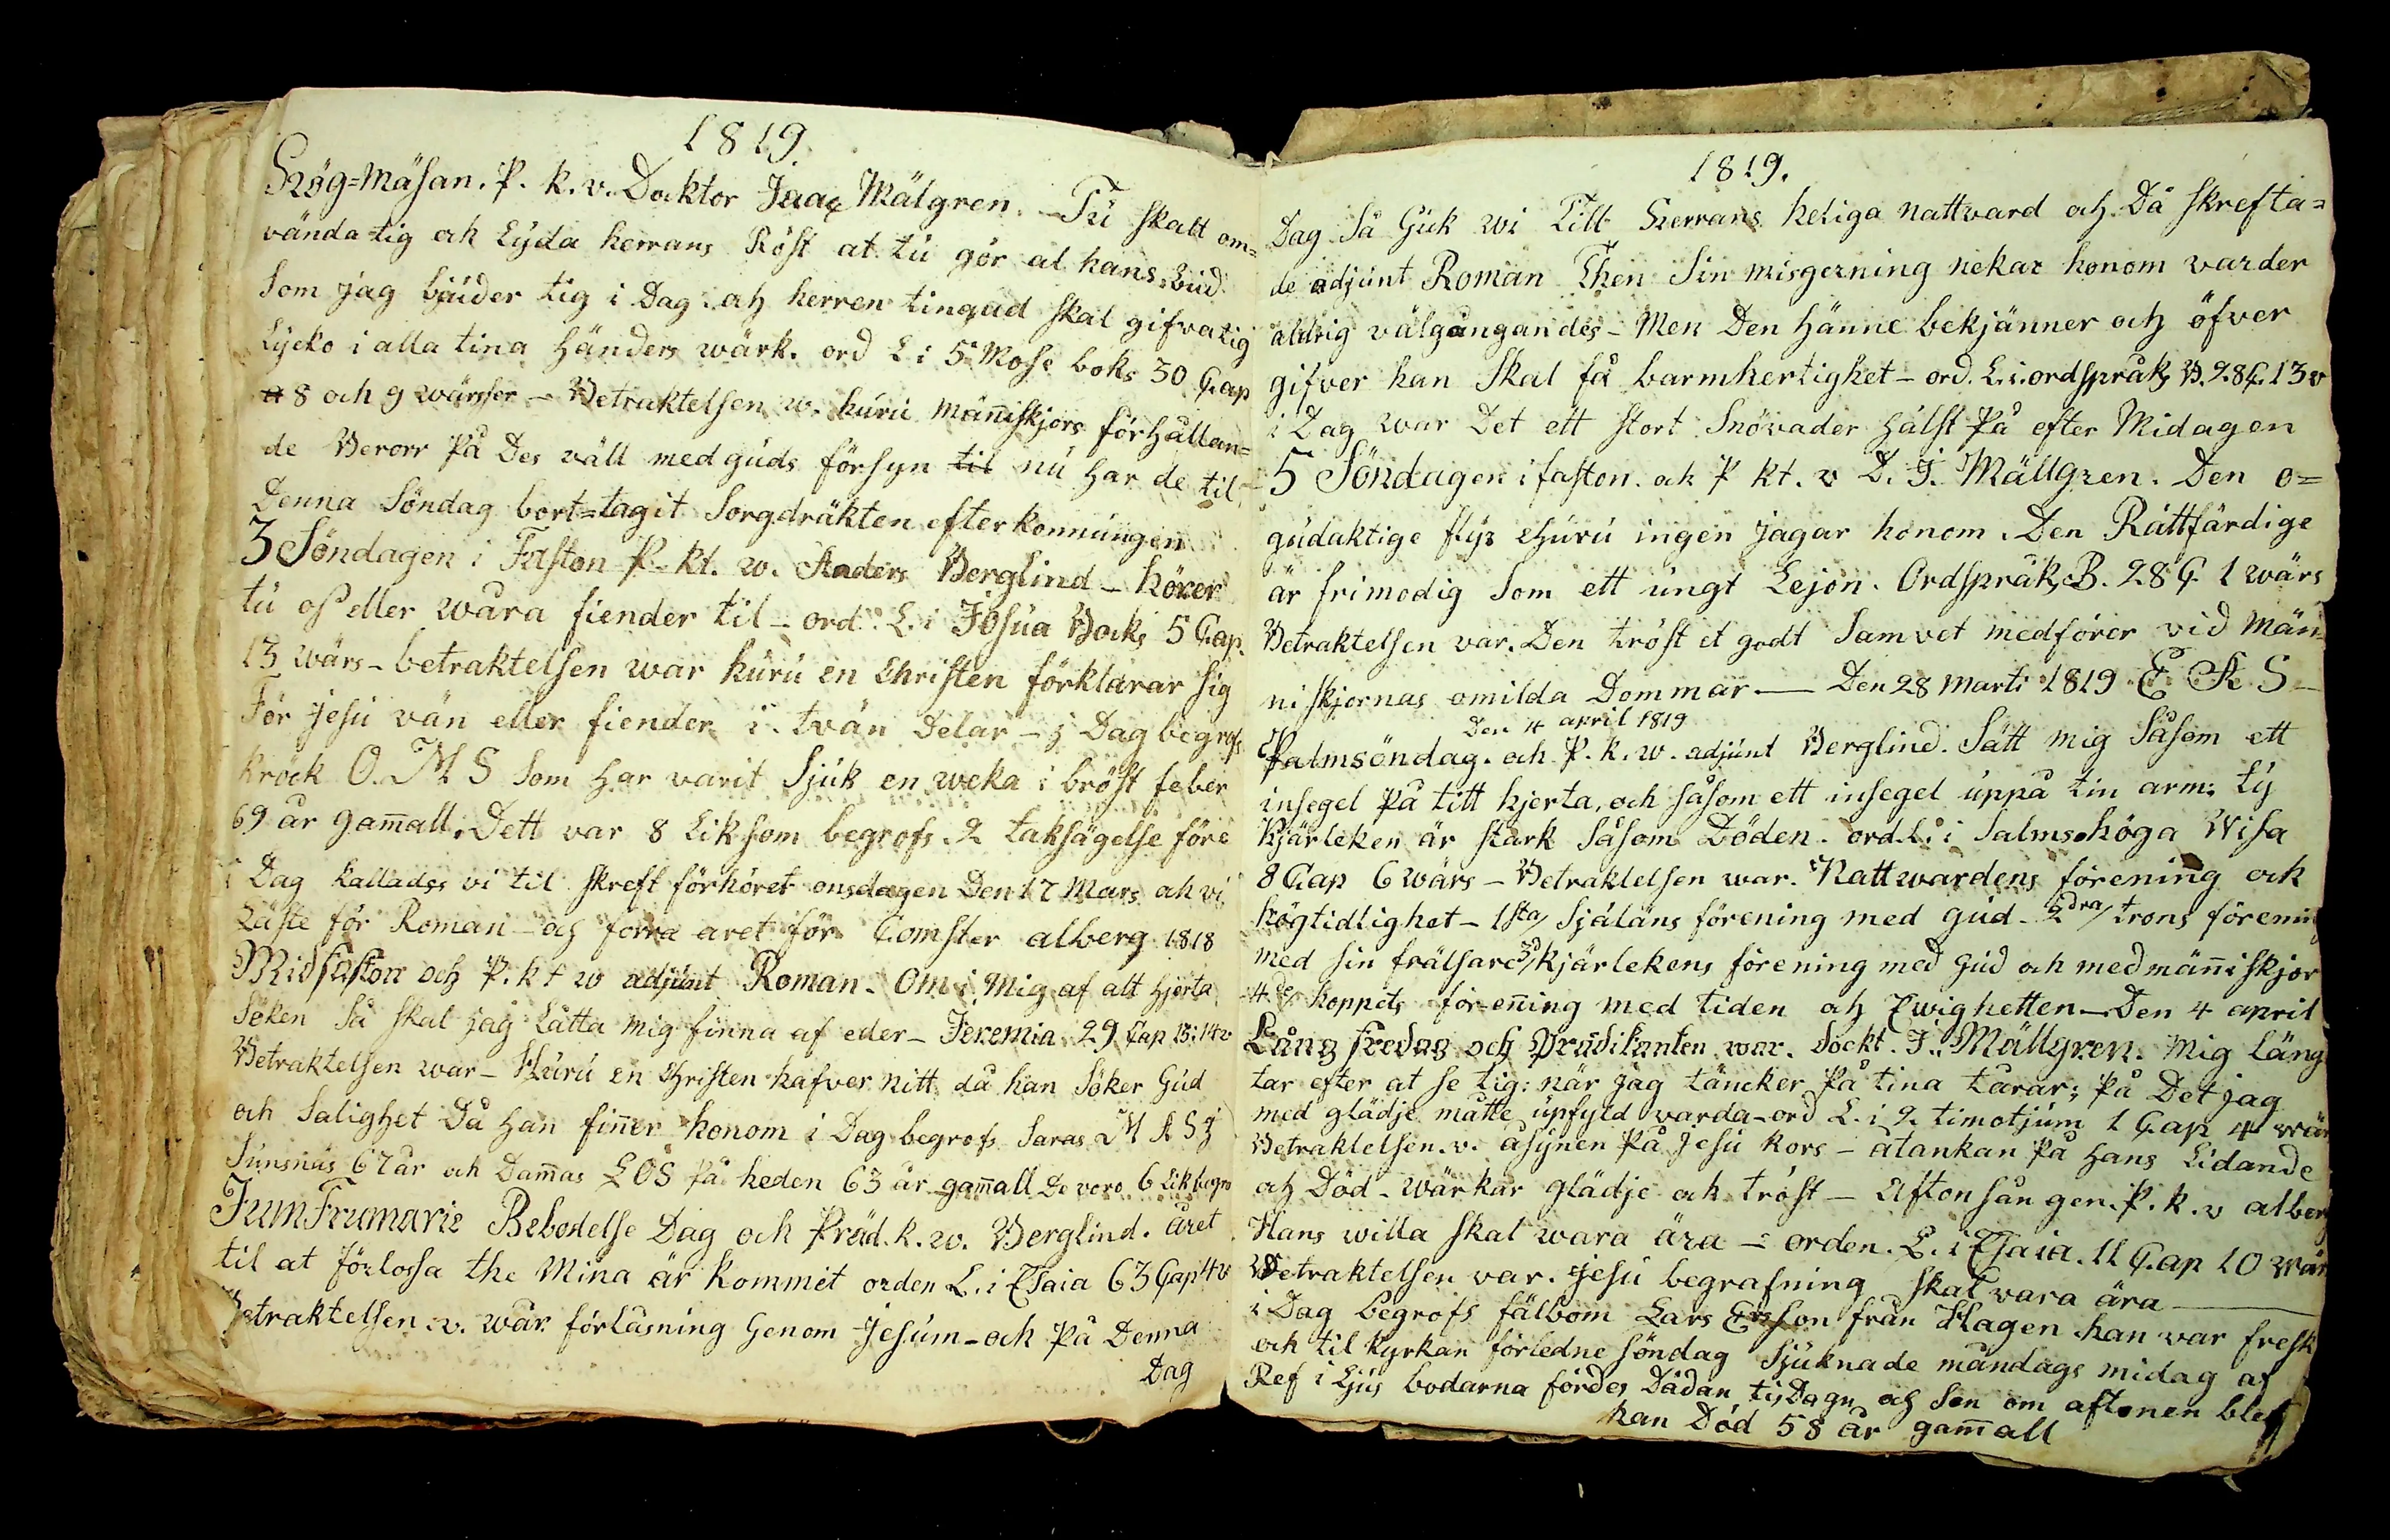 1819.
Hög=Mäsan. P. k. v. Docktor Isaac Mälgren. Tu skalt om=
vända tig och Lyda herrans Röst at tu gör al hans Bud
Som jag bjuder tig i Dag och herren tingud skal gifva tig
Lycko i alla tina händers wärk. ord L. i 5 Mose boks 30 Cap
8 och 9 wärser - Betraktelsen w. huru män̄iskjors förhållan=
de Beror På Des väll med guds försyn til nu har de til
Denna Söndag bort=tagit Sorgdräkten efter konnungen
3 Söndagen i Faston P. kt. w. Anders Berglind - hörer
tu oss eller wåra fiender til - ord L. i Josua Bocks 5 Cap.
13 wärs - betraktelsen war huru en Christen förklarar sig
För Jesu vän eller fiender i tvän Delar - i Dag begrofs
kröck O. M S Som har varit Sjuk en weka i bröst feber
69 år gam̄all. Dett var 8 Lik som begrofs. 2 taksägelse före
i Dag kallades vi til skreft förhöret onsdagen Den 17 Mars och vi
Läste för Roman - och förra aret för Comster alberg 1818
Midfaston och P. kt w adjunt Roman. Om i Mig af alt hjerta
Söken Så skal jag Lätta mig finna af eder - Jeremia 29 Cap 13: 14 v
Betraktelsen war - Huru en Christen hafver nitt då han Söker Gud
och Salighet Då han fin̄er honom i Dag begrofs Saras M A S i
Sunsnäs 67 år och Dam̄as L O S på heden 63 år gam̄all De voro 6 Lik begro
JumFrumarie Bebodelse Dag och Präd. k. w. Berglind. året
til at förlossa the Mina är kommit orden L. i Esaia 63 Cap 4 v
Betraktelsen v. wår förlåsning Genom Jesum - och På Denna
Dag
1819.
Dag Så Gick wi Till Herrans heliga nattvard och Då skrefta=
de adjunt Roman Then Sin misgerning nekar honom varder
aldrig välgångandes - Men Den hänne bekjänner och öfver
gifver han Skal få barmhertighet - ord. L. i. ordspråk B. 28 C. 13 v
i Dag war Det ett stort Snövader hälst På efter Midagen
5 Söndagen i faston. och P kt. v D. J. Mällgren. Den o=
gudaktige flyr ehuru ingen jagar honom. Den Rättfärdige
är frimodig Som ett ungt Lejon. Ordspråk B. 28 C. 1 wärs
Betraktelsen var. Den tröst et godt Samvet medförer vid Män
niskjornas omilda Dommar — Den 28 Marti 1819 E A S -
Den 4 april 1819
Palmsöndag. och P. k. w. adjunt Berglind. Sätt mig Såsom ett
insegel På titt hjerta, och såsom ett insegel uppå tin arm: ty
Kjärleken är stark Såsom Döden. ord. L. i Salmos höga Wisa
8 Cap 6 wärs - Betraktelsen war. Nattwardens förening och
högtidlighet - 1sta/ Själäns förening med gud - 2dra/ trons förenin
med sin frälsare 3d/ kjärlekens förening med gud och medmän̄iskjor
4de/ hoppets förenn̄ing med tiden och Ewighetten - Den 4 april
Lång fredag och Prädikanten war. Dockt. J. Mällgren. Mig läng
tar efter at se tig: när jag täncker På tina tårar; På Det jag
med glädje måtte upfyld varda - ord L. i 2. timotjum 1 Cap 4 wär
Betraktelsen. v. åsynen På Jesu kors - åtankan På hans Lidande
och Död - Wärkar glädje och tröst - Aftonsången. P. k. v alberg
Hans willa skal wara ära - orden. L. i Esaia. 11 Cap 10 wär
Betraktelsen var. Jesu begrafning skal vara ära —
i Dag begrofs fälbom Lars Erson från Hagen han var fresk
och til kyrkan förledne söndag Sjuknade måndags midag af
Ref i Ljus bodarna fördes Dädan tisDagn och Sen om aftonen blef
han Död 58 år gam̄all